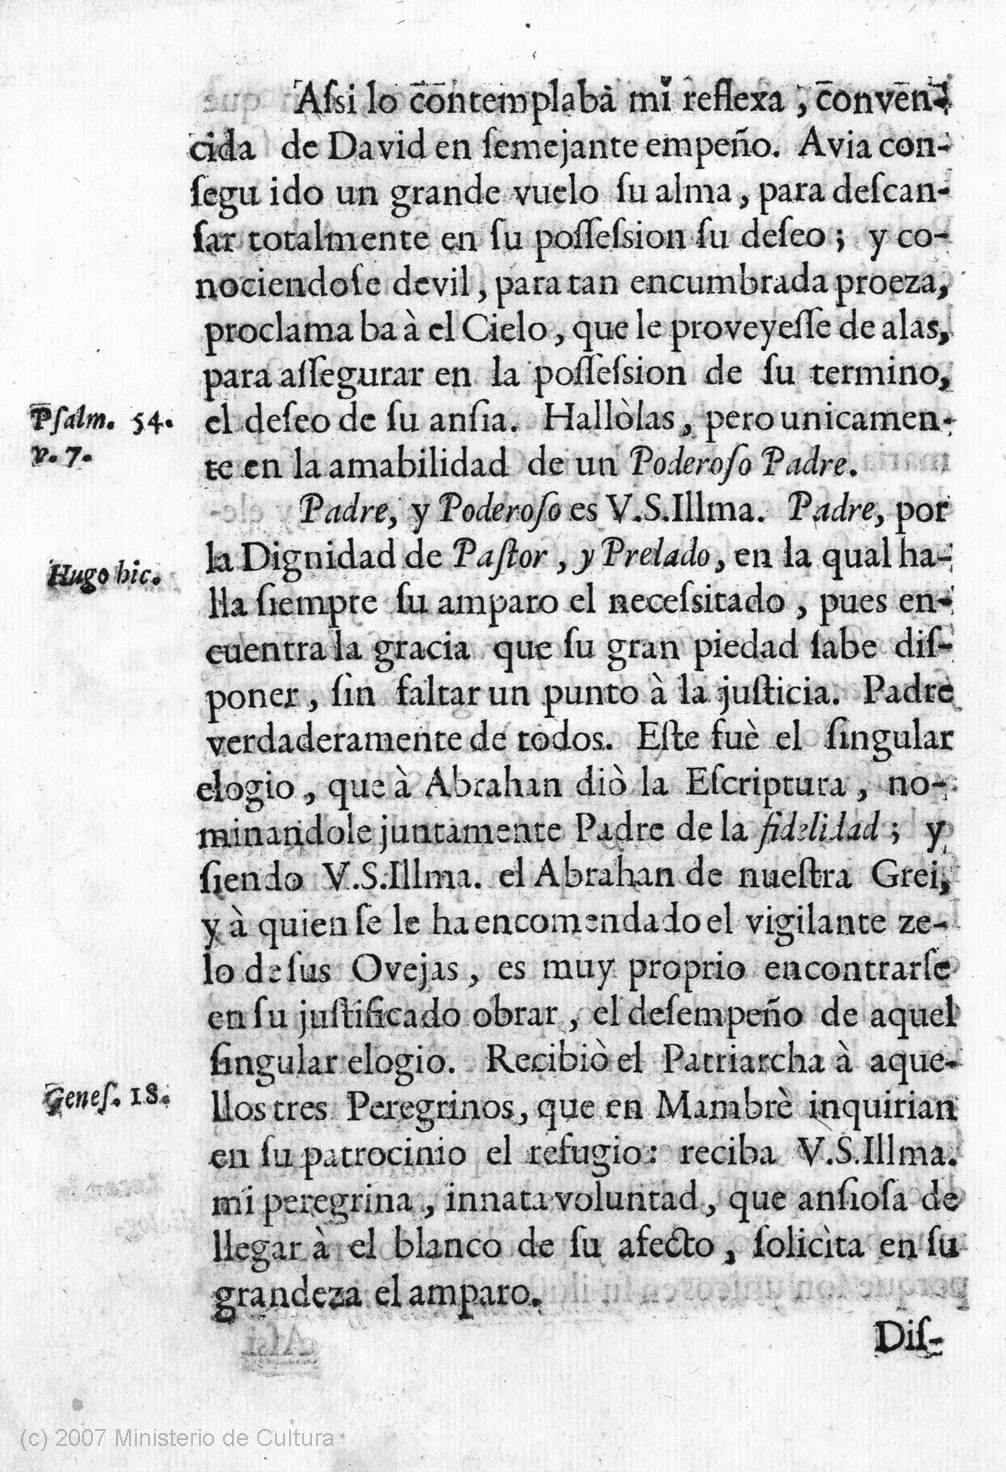 Aſsi lo c̄ontemplaba mi reflexa, c̄onven̄-
cida de David en ſemejante empeño. Avia con-
ſegu ido un grande vuelo ſu alma, para deſcan-
ſar totalmente en ſu poſſeſsion ſu deſeo; y co-
nociendoſe devil, para tan encumbrada proeza,
proclamaba à el Cielo, que le proveyeſſe de alas,
para aſſegurar en la poſſeſsion de ſu termino,
Pſalm. 54. el deſeo de ſu anſia. Hallòlas, pero unicamen-
v. 7. te en la amabilidad de un Poderoſo Padre.
Padre, y Poderoſo es V.S.Illma. Padre, por
Hugo hic. la Dignidad de Paſtor, y Prelado, en la qual ha-
lla ſiempre ſu amparo el neceſsitado, pues en-
cuentra la gracia que ſu gran piedad ſabe diſ-
poner, ſin faltar un punto à la juſticia. Padre
verdaderamente de todos. Eſte fuè el ſingular
elogio, que à Abrahan diò la Eſcriptura, no-
minandole juntamente Padre de la fidelidad; y
ſiendo V.S.Illma. el Abrahan de nueſtra Grei,
y à quien ſe le ha encomendado el vigilante ze-
lo de ſus Ovejas, es muy proprio encontrarſe
en ſu juſtificado obrar, el deſempeño de aquel
ſingular elogio. Recibiò el Patriarcha à aque-
Geneſ. 18. llos tres Peregrinos, que en Mambrè inquirian
en ſu patrocinio el refugio: reciba V.S.Illma.
mi peregrina, innata voluntad, que anſioſa de
llegar à el blanco de ſu afecto, ſolicìta en ſu
grandeza el amparo.
Diſ-
(c) 2007 Ministerio de Cultura